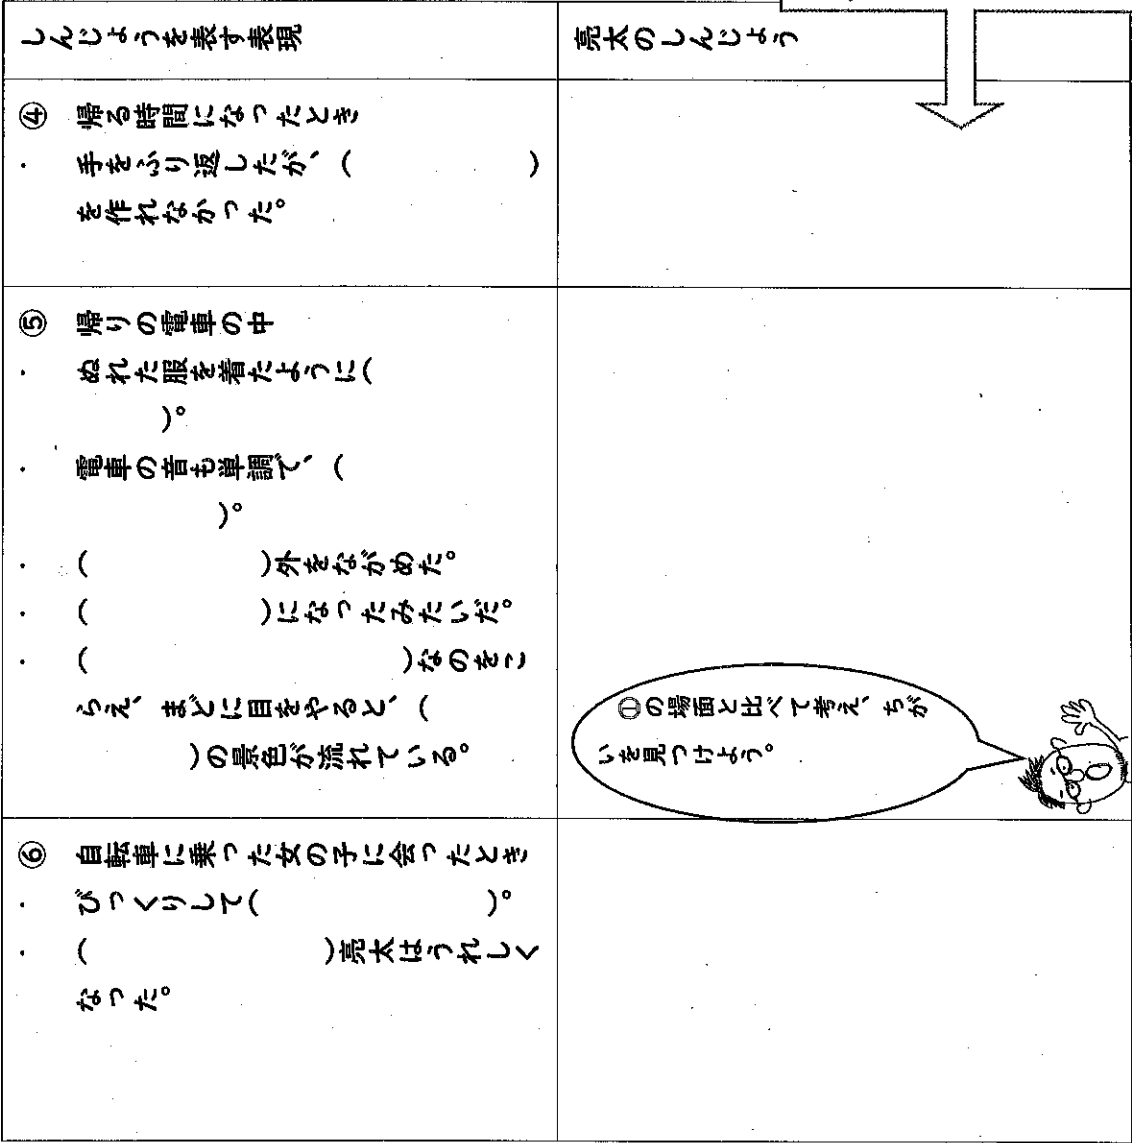 しんじょうを表す表現
亮太のしんじょう
④ 帰る時間になったとき
・ 手をふり返したが、（　　　　　）
を作れなかった。
⑤ 帰りの電車の中
・ ぬれた服を着たように（
　　　）。
・ 電車の音も単調で、（
　　　　）。
・ （　　　　　）外をながめた。
・ （　　　　　）になったみたいだ。
・ （　　　　　　　　　）なのをこ
らえ、まどに目をやると、（
　　　）の景色が流れている。
①の場面と比べて考え、ちが
いを見つけよう。
⑥ 自転車に乗った女の子に会ったとき
・ びっくりして（　　　　　　）。
・ （　　　　　　　）亮太はうれしく
なった。